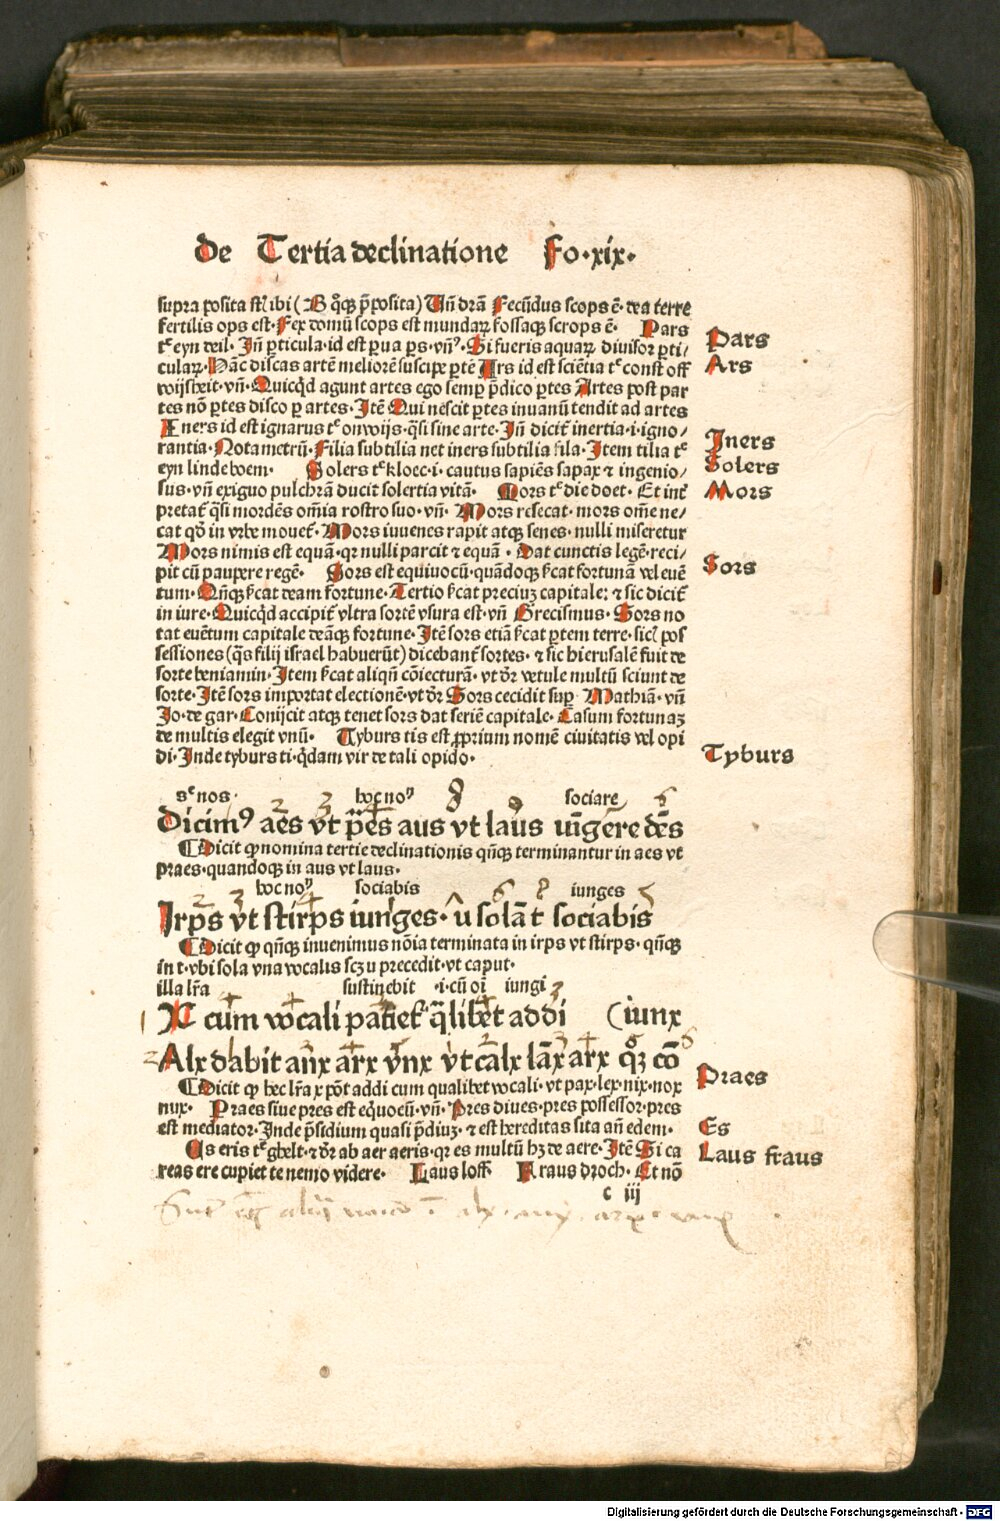 de Tertia declinatione Fo.xix.
supra posita sil̃ ibi (B qñqꝫ p̃posita) Vñ dr̃a Fecũdus scops ẽ. dea terre
fertilis ops est. Fex domũ scops est mundaꝝ fossaqꝫ scrops ẽ. Pars
tᵉ eyn deil. Jñ ꝑticula. id est ꝑua ꝑs. vñ⁹. Si fueris aquaꝝ diuisor ꝑti/
culaꝝ. Hãc discas artẽ meliorẽ suscipe ꝑtẽ Ars id est sciẽtia tᵉ const off
woijsheit. vñ. Quicqd̃ agunt artes ego semꝑ p̃dico ꝑtes Artes post par
tes nõ ꝑtes disco ꝑ artes. Jtẽ Qui nescit ꝑtes inuanũ tendit ad artes
Jners id est ignarus tᵉ onwijs. q̃si sine arte. Jñ dicit̃ inertia. i. igno/
rantia. Nota metrũ. Filia subtilia net iners subtilia fila. Jtem tilia tᵉ
eyn linde boem. Solers tᵉ kloec. i. cautus sapiẽs sapax ⁊ ingenio/
sus. vñ exiguo pulchrã ducit solertia vitã. Mors tᵉ die doet. Et int̃
pretat̃ q̃si mordẽs om̃ia rostro suo. vñ. Mors resecat. mors om̃e ne/
cat qð in vrbe mouet̃. Mors iuuenes rapit atqꝫ senes. nulli miseretur
Mors nimis est equã. qꝛ nulli parcit ⁊ equã. Dat cunctis legẽ. reci/
pit cũ paupere regẽ. Sors est equiuocũ. quãdoqꝫ ſ̃cat fortunã vel euẽ
tum. Qñqꝫ ſ̃cat deam fortune. Tertio ſ̃cat preciuꝫ capitale: ⁊ sic dicit̃
in iure. Quicqd̃ accipit̃ vltra sortẽ vsura est. vñ Grecismus. Sors no
tat euẽtum capitale deãqꝫ fortune. Jtẽ sors etiã ſ̃cat ꝑtem terre. sicl̃ pos
sessiones (q̃s filij israel habuerũt) dicebant̃ sortes. ⁊ sic hierusalẽ fuit de
sorte beniamin. Jtem ſ̃cat aliqñ cõiecturã. vt dr̃ vetule multũ sciunt de
sorte. Jtẽ sors importat electionẽ. vt dr̃ Sors cecidit suꝑ Mathiã. vñ
Jo. de gar. Conijcit atqꝫ tenet sors dat seriẽ capitale. Casum fortunaꝫ
de multis elegit vnũ. Tyburs tis est ꝓprium nomẽ ciuitatis vel opi
di. Jnde tyburs ti. qd̃am vir de tali opido.
Pars
Ars
Jners
Solers
Mors
Sors
Tyburs
sᵉ nos. hoc noᵐ sociare
Dicim⁹ aes vt p̃es aus vt laus vñgere dẽs
Dicit ꝙ nomina tertie declinationis qñqꝫ terminantur in aes vt
praes. quandoqꝫ in aus vt laus.
hoc noᵐ sociabis iunges
Jrps vt stirps iunges. u solã t sociabis
Dicit ꝙ qñqꝫ inuenimus nõia terminata in irps vt stirps. qñqꝫ
in t. vbi sola vna vocalis scꝫ u precedit. vt caput.
illa lr̃a sustinebit .i. cũ oĩ iungi
X cum vocali patiet̃ q̃libet addi (iunx
Alx dabit anx arx vnx vt calx lãx arx qꝫ cõ
Dicit ꝙ hec lr̃a x põt addi cum qualibet vocali. vt pax. lex. nix. nox
nux. Praes siue pres est eq̃uocũ. vñ. Pres diues. pres possessor. pres
est mediator. Jnde p̃sidium quasi p̃diuꝫ. ⁊ est hereditas sita añ edem.
Es eris tᵉ ghelt. ⁊ dr̃ ab aer aeris. qꝛ es multũ hꝫ de aere. Jtẽ Si ca
reas ere cupiet te nemo videre. Laus loff Fraus droch. Et nõ
Praes
Es
Laus fraus
c iij
Digitalisierung gefördert durch die Deutsche Forschungsgemeinschaft - DFG